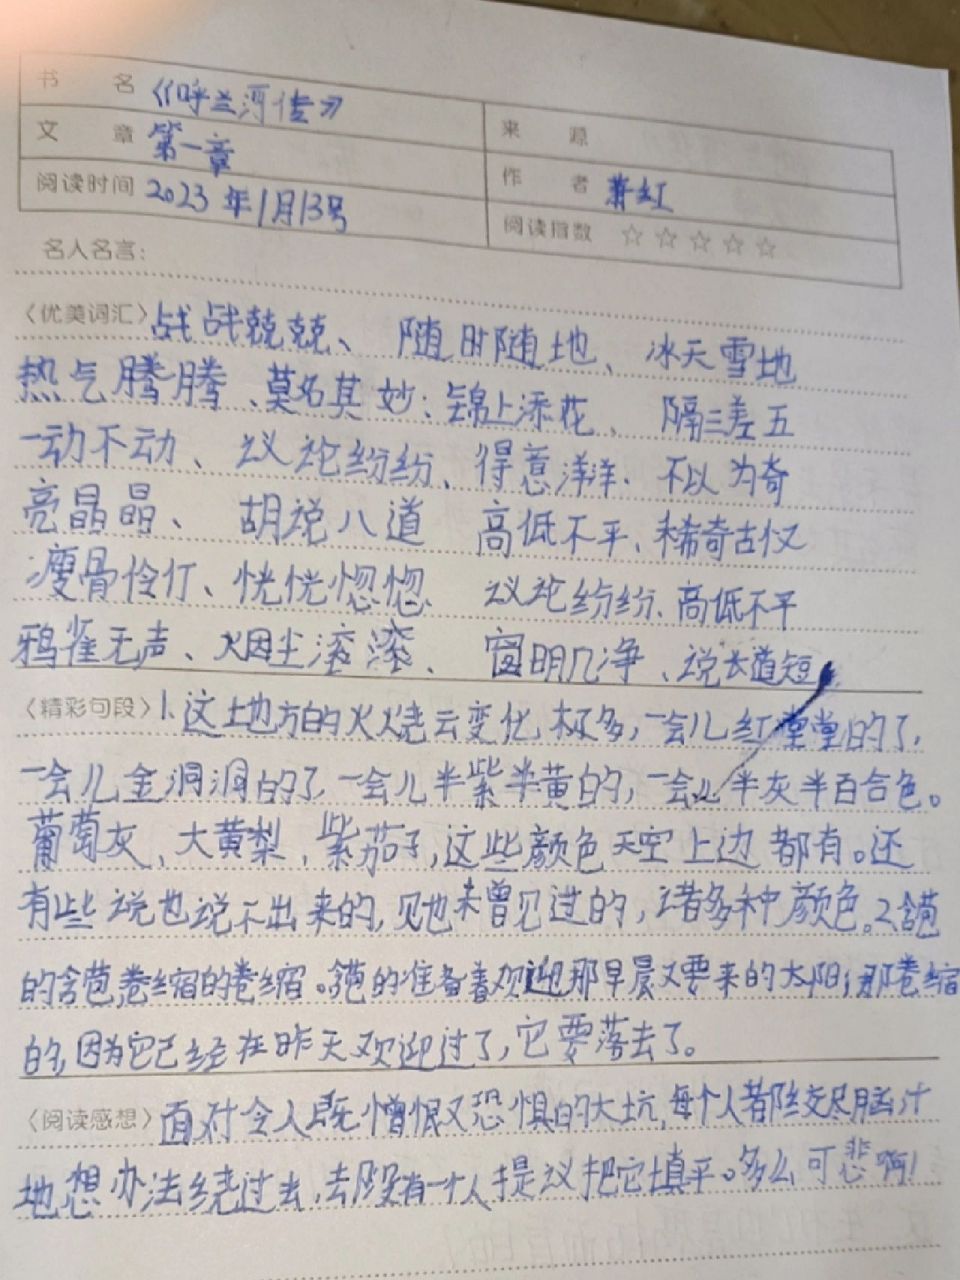 书 名 《呼兰河传》 来 源
文 章 第一章 作 者 萧红
阅读时间 2023年1月13号 阅读指数 ☆☆☆☆☆
名人名言：
〈优美词汇〉战战兢兢、 随时随地、 冰天雪地
热气腾腾、莫名其妙、锦上添花、 隔三差五
一动不动、议论纷纷、得意洋洋、不以为奇
亮晶晶、 胡说八道 高低不平、
瘦骨伶仃、恍恍惚惚 议论纷纷、高低不平
鸦雀无声、烟尘滚滚、 窗明几净、说长道短
〈精彩句段〉1.这土地方的火烧云变化极多，一会儿红堂堂的了，
一会儿金洞洞的了，一会儿半紫半黄的，一会儿半灰半百合色。
葡萄灰，大黄梨，紫茄子，这些颜色天空上边都有。还
有些说也说不出来的，见也未曾见过的，诸多种颜色。2.含苞
的含苞卷缩的卷缩。含苞的准备着欢迎那早晨又要来的太阳，那卷缩
的，因为它已经在昨天欢迎过了，它要落去了。
〈阅读感想〉面对令人既憎恨又恐惧的大坑，每个人都绞尽脑汁
地想办法绕过去，去没有一个人提议把它填平。多么可悲啊！